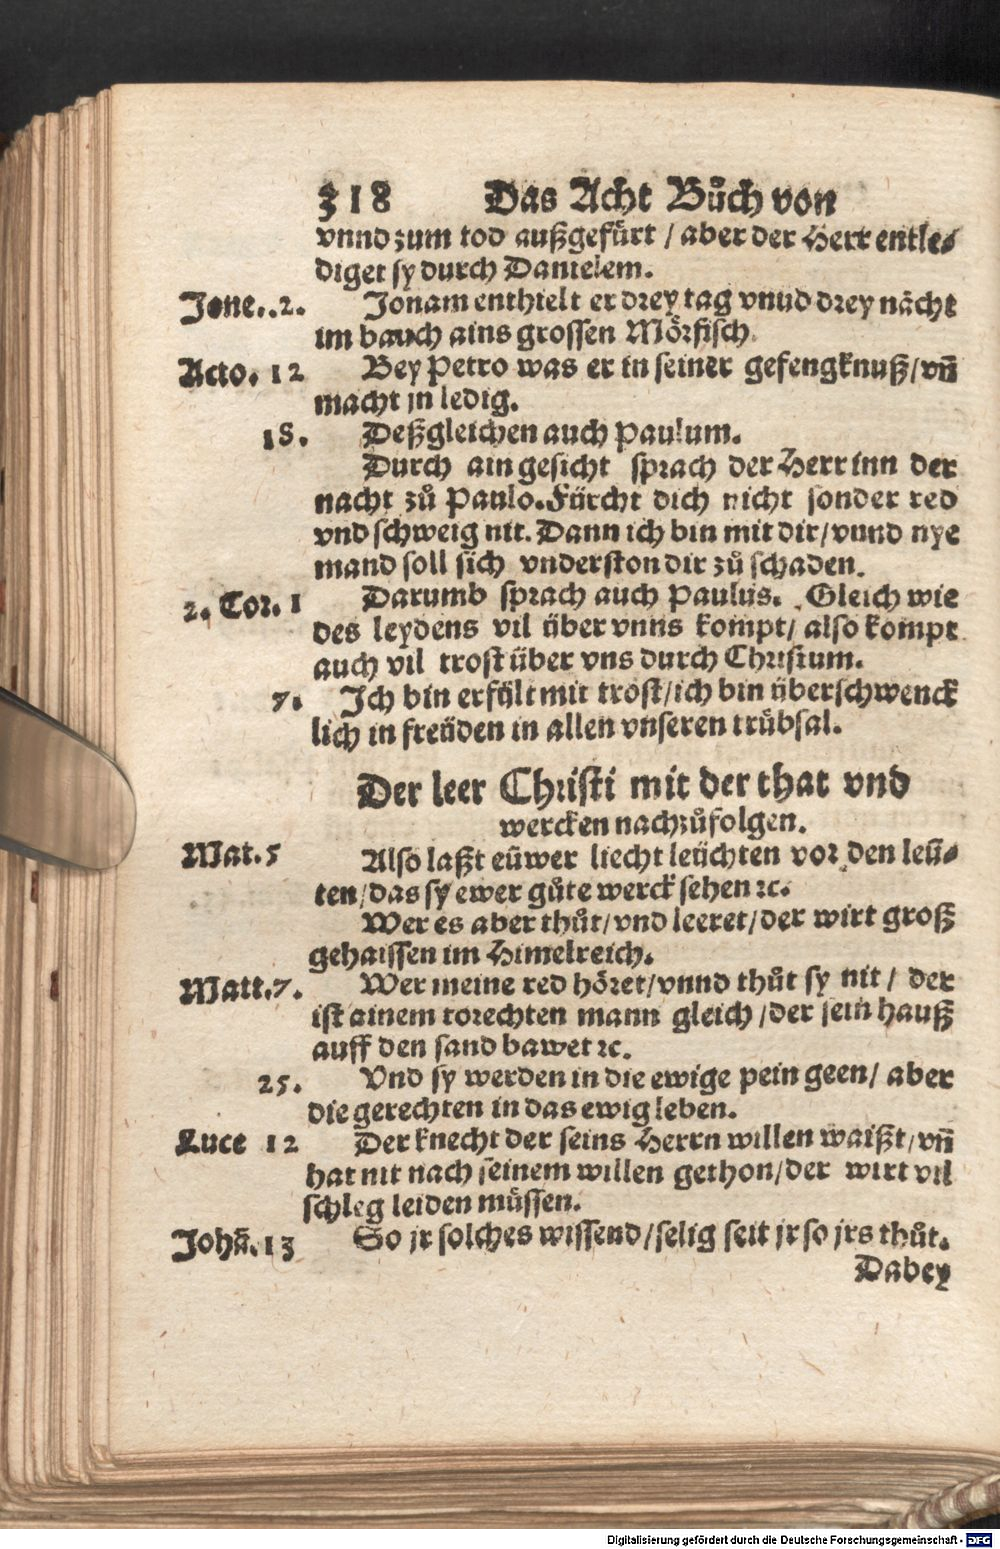 318 Das Acht Bůch von
vnnd zum tod außgefürt / aber der Herr entle⸗
diget sy durch Danielem.
Jone..2. Jonam enthielt er drey tag vnnd drey nächt
im bauch ains grossen Mörfisch.
Acto. 12 Bey Petro was er in seiner gefengknuß/ vñ
macht jn ledig.
18. Deßgleichen auch Paulum.
Durch ain gesicht sprach der Herr inn der
nacht zů Paulo. Fürcht dich nicht sonder red
vnd schweig nit. Dann ich bin mit dir/ vnnd nye
mand soll sich vnderston dir zů schaden.
2. Cor. 1 Darumb sprach auch Paulus. Gleich wie
des leydens vil über vnns kompt/ also kompt
auch vil trost über vns durch Christum.
7. Ich bin erfült mit trost/ ich bin überschwenck
lich in freüden in allen vnseren trübsal.
Der leer Christi mit der that vnd
wercken nachzůfolgen.
Mat. 5 Also laßt eüwer liecht leüchten vor den leü⸗
ten/ das sy ewer gůte werck sehen ꝛc.
Wer es aber thůt/ vnd leeret/ der wirt groß
gehaissen im Himelreich.
Matt. 7. Wer meine red höret/ vnnd thůt sy nit / der
ist ainem torechten mann gleich / der sein hauß
auff den sand bawet ꝛc.
25. Vnd sy werden in die ewige pein geen/ aber
die gerechten in das ewig leben.
Luce 12 Der knecht der seins Herrn willen waißt/ vñ
hat nit nach seinem willen gethon/ der wirt vil
schleg leiden müssen.
Johã. 13 So jr solches wissend/ selig seit jr so jrs thůt.
Dabey
Digitalisierung gefördert durch die Deutsche Forschungsgemeinschaft - DFG